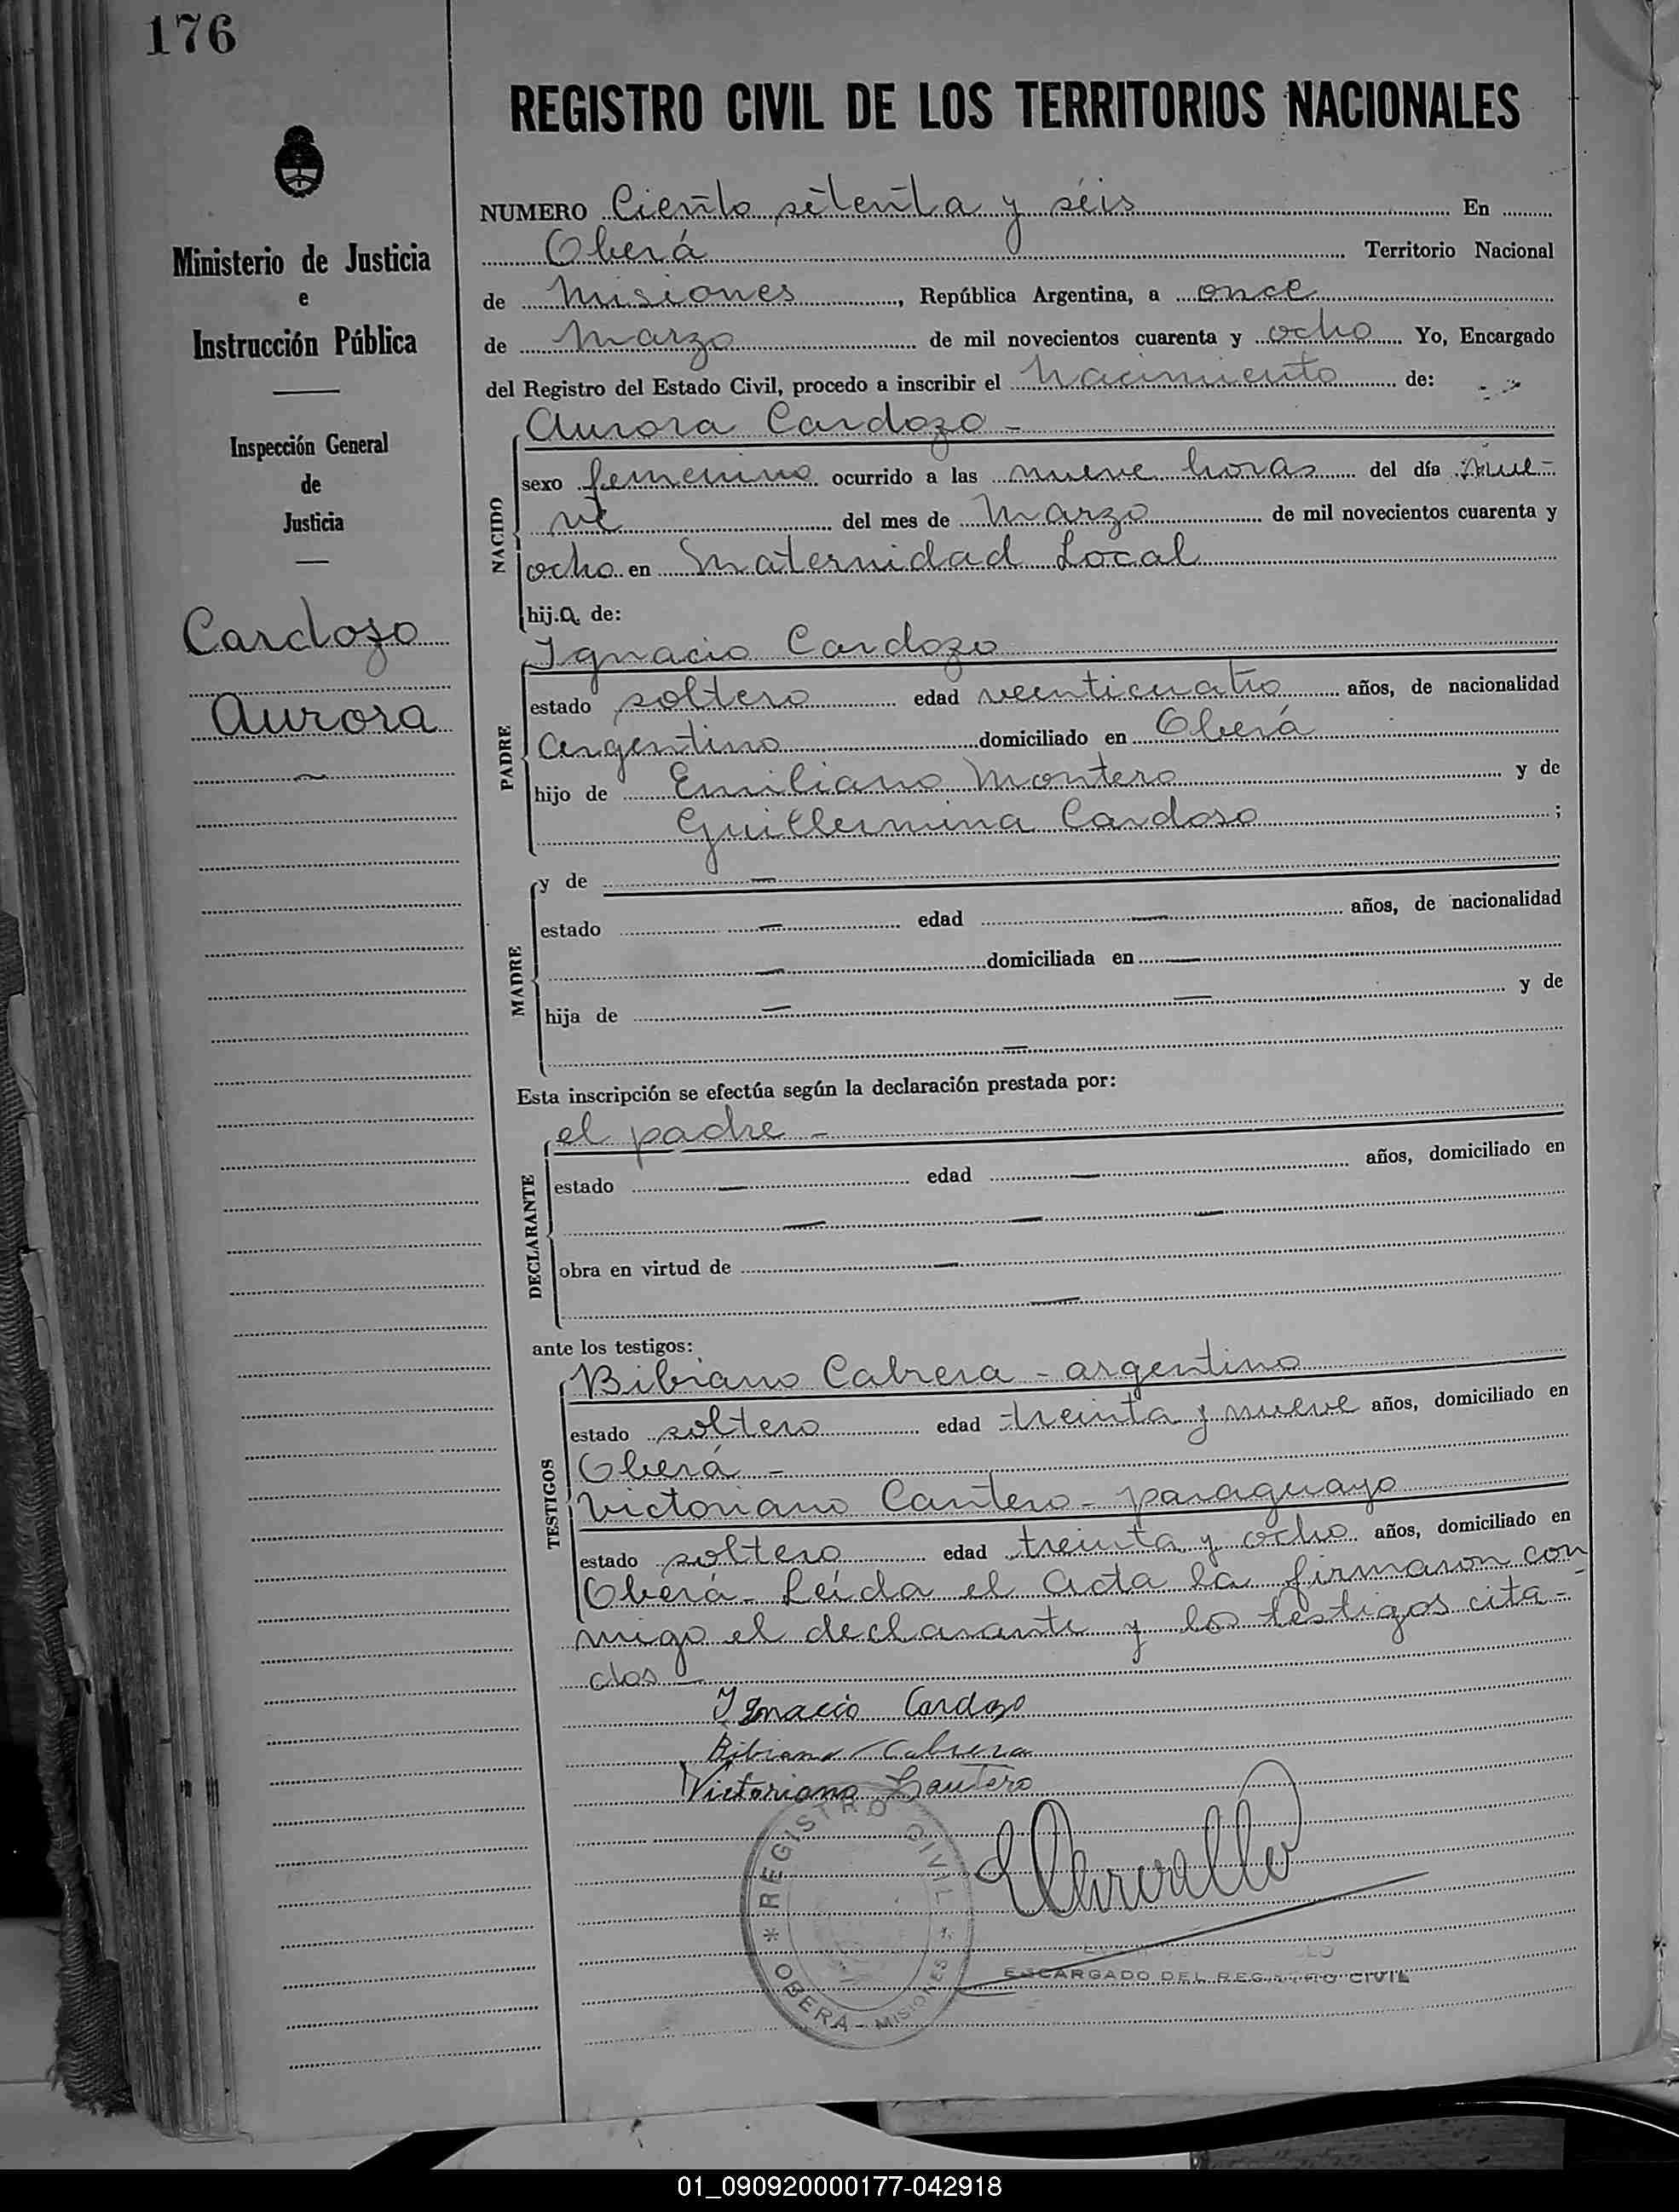 176
REGISTRO CIVIL DE LOS TERRITORIOS NACIONALES
Ministerio de Justicia
e
Instrucción Pública
Inspección General
de
Justicia
Cardozo
Aurora
NUMERO Ciento setenta y séis En
Oberá Territorio Nacional
de Misiones, República Argentina, a once
de Marzo de mil novecientos cuarenta y ocho Yo, Encargado
del Registro del Estado Civil, procedo a inscribir el Nacimiento de:
Aurora Cardozo -
NACIDO
sexo femenino ocurrido a las nueve horas del día nue-
ve del mes de Marzo de mil novecientos cuarenta y
ocho en Maternidad Local
hij.a de:
Ignacio Cardozo
PADRE
estado soltero edad veinticuatro años, de nacionalidad
Argentino domiciliado en Oberá
hijo de Emiliano Montero y de
Guillermina Cardoso ;
MADRE
y de —
estado — edad — años, de nacionalidad
— domiciliada en —
hija de — — y de
—
Esta inscripción se efectúa según la declaración prestada por:
el padre -
DECLARANTE
estado — edad — años, domiciliado en
— — —
obra en virtud de —
—
ante los testigos:
Bibiano Cabrera - argentino
TESTIGOS
estado soltero edad treinta y nueve años, domiciliado en
Oberá -
Victoriano Cantero - paraguayo
estado soltero edad treinta y ocho años, domiciliado en
Oberá - Leída el Acta la firmaron con
migo el declarante y los testigos cita-
dos -
Ignacio Cardozo
Bibiano Cabrera
Victoriano Cantero
REGISTRO CIVIL
* OBERÁ - MISIONES *
ENCARGADO DEL REGISTRO CIVIL
01_090920000177-042918